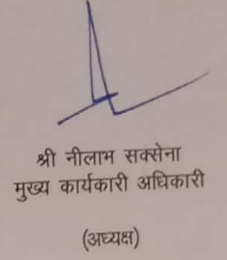 श्री नीलाभ सक्सेना
मुख्य कार्यकारी अधिकारी
(अध्यक्ष)